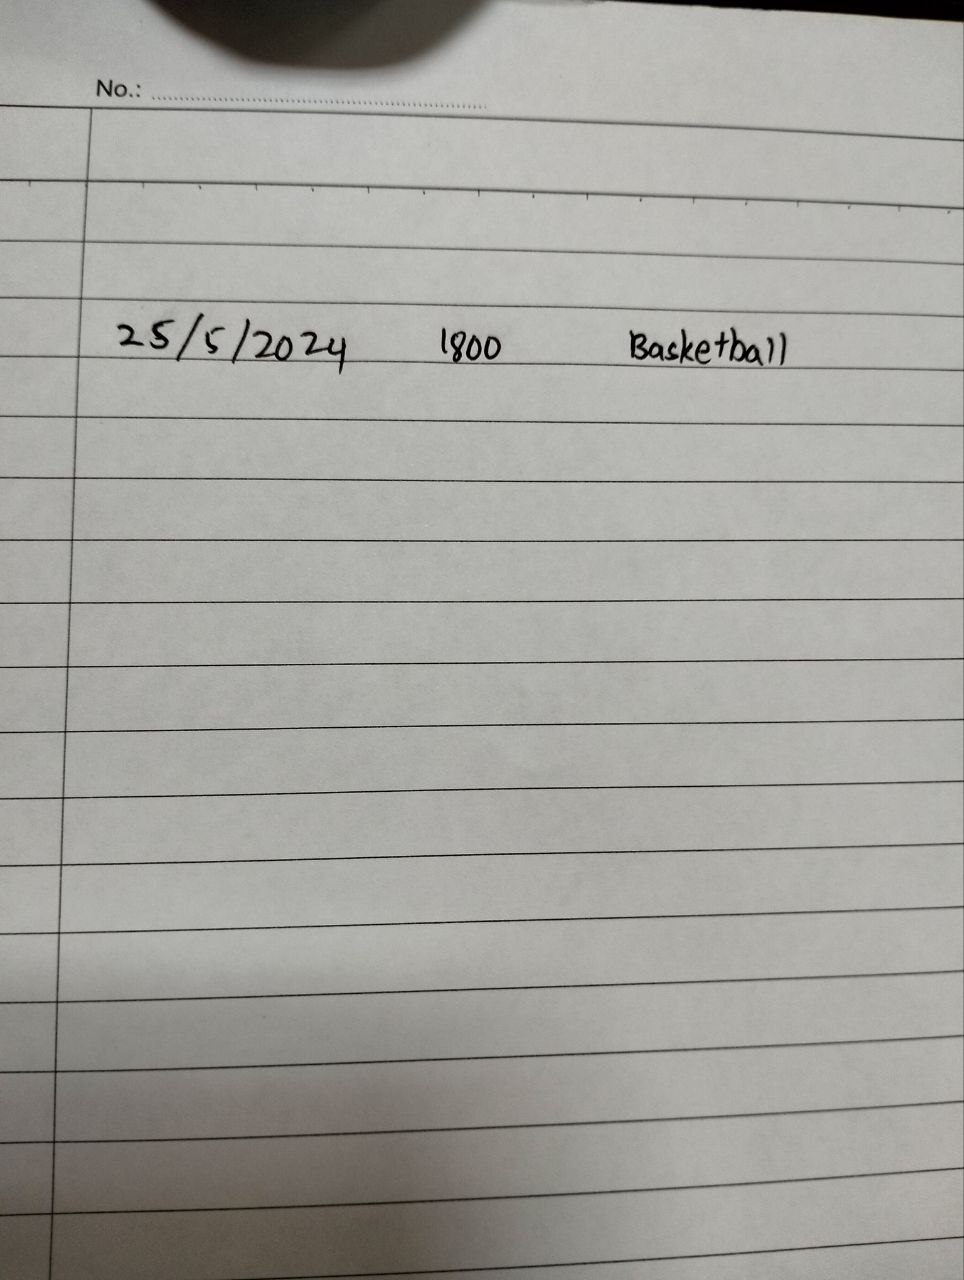 No.:
25/5/2024 1800 Basketball